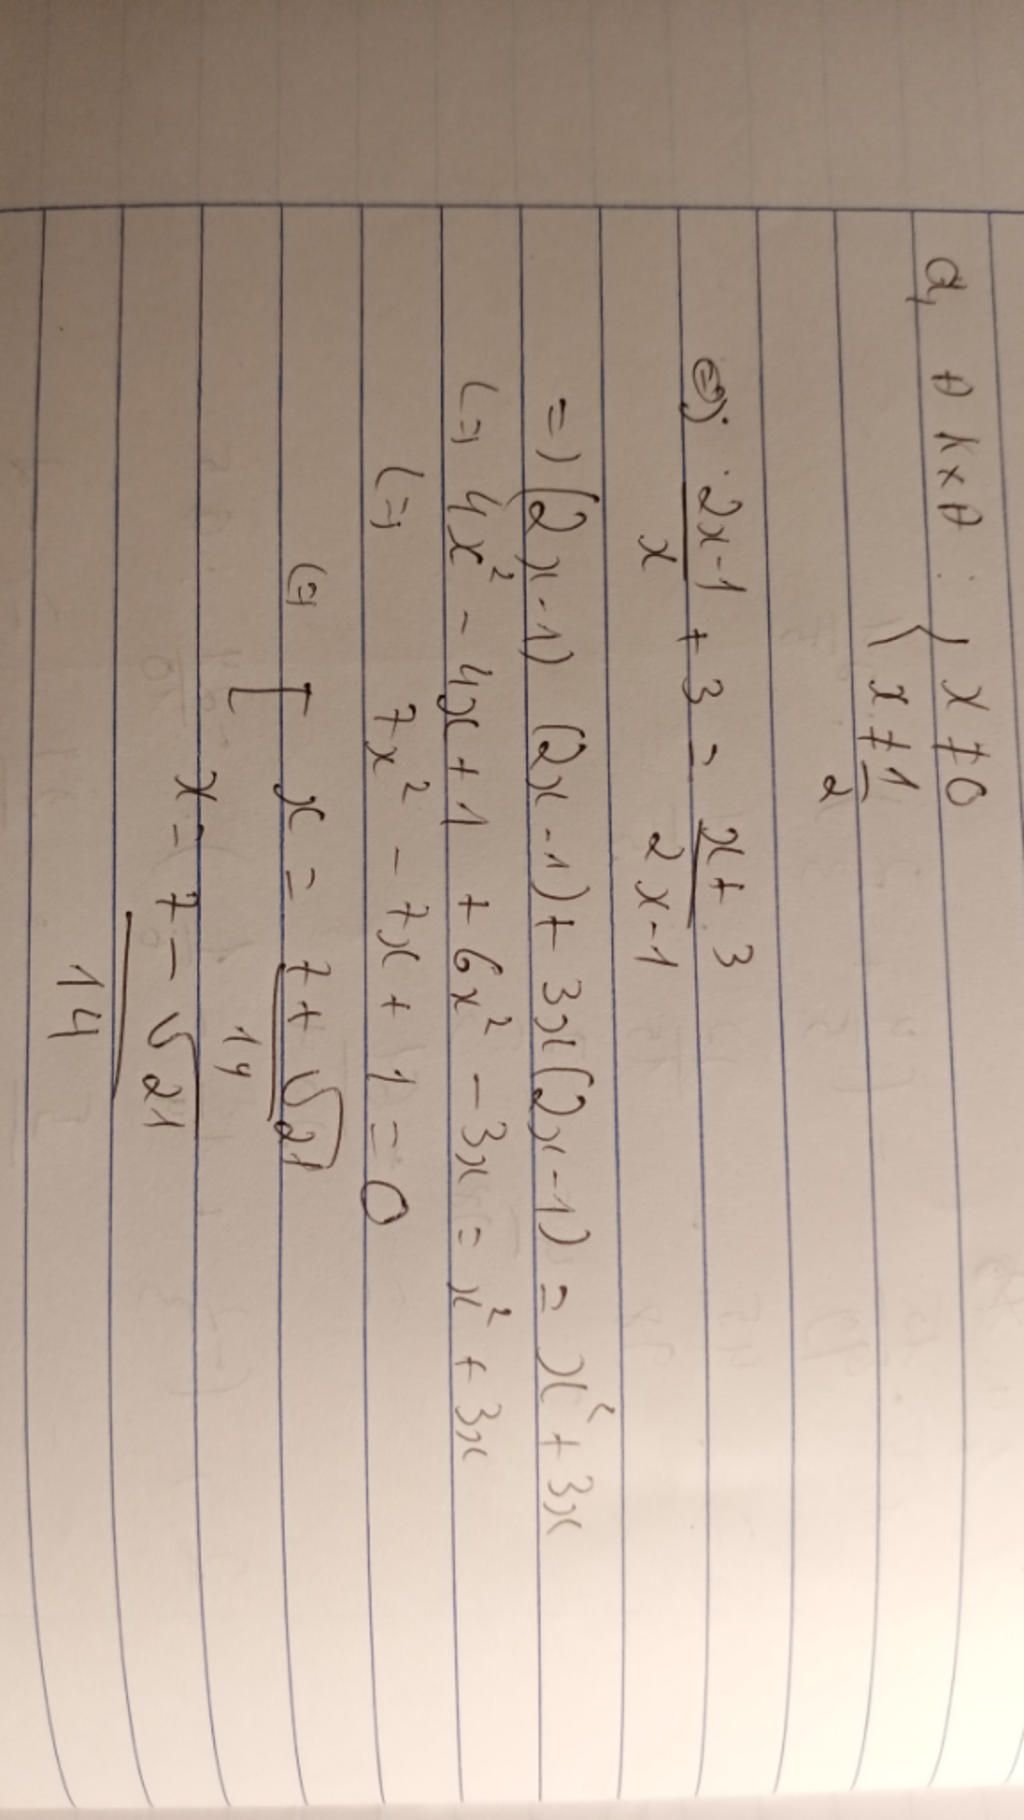 a, ĐKXĐ: { x ≠ 0
{ x ≠ 1/2
(=) (2x-1)/x + 3 = (x+3)/(2x-1)
=) (2x-1)(2x-1)+3x(2x-1) = x²+3x
(=) 4x² - 4x+1 + 6x² - 3x = x² + 3x
(=) 7x² - 7x + 1 = 0
(=) [ x = (7+√21)/14
x = (7-√21)/14